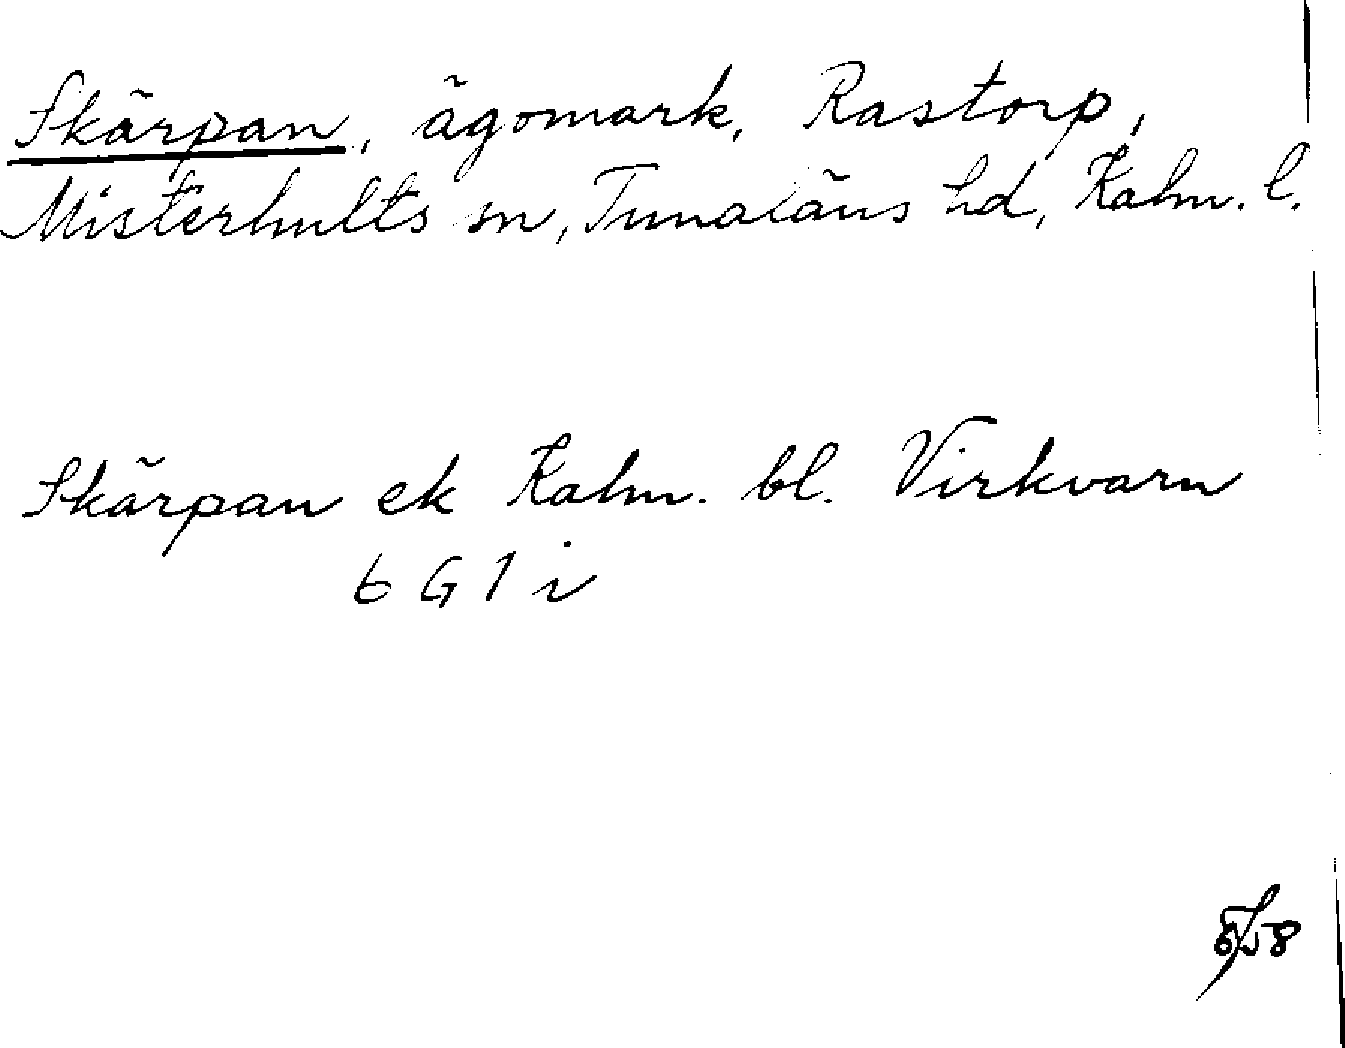 Skärpan, ägomark, Rastorp,
Misterhults sn, Tunaläns hd, Kalm. l.
Skärpan ek Kalm. bl. Virkvarn
6 G 1 i